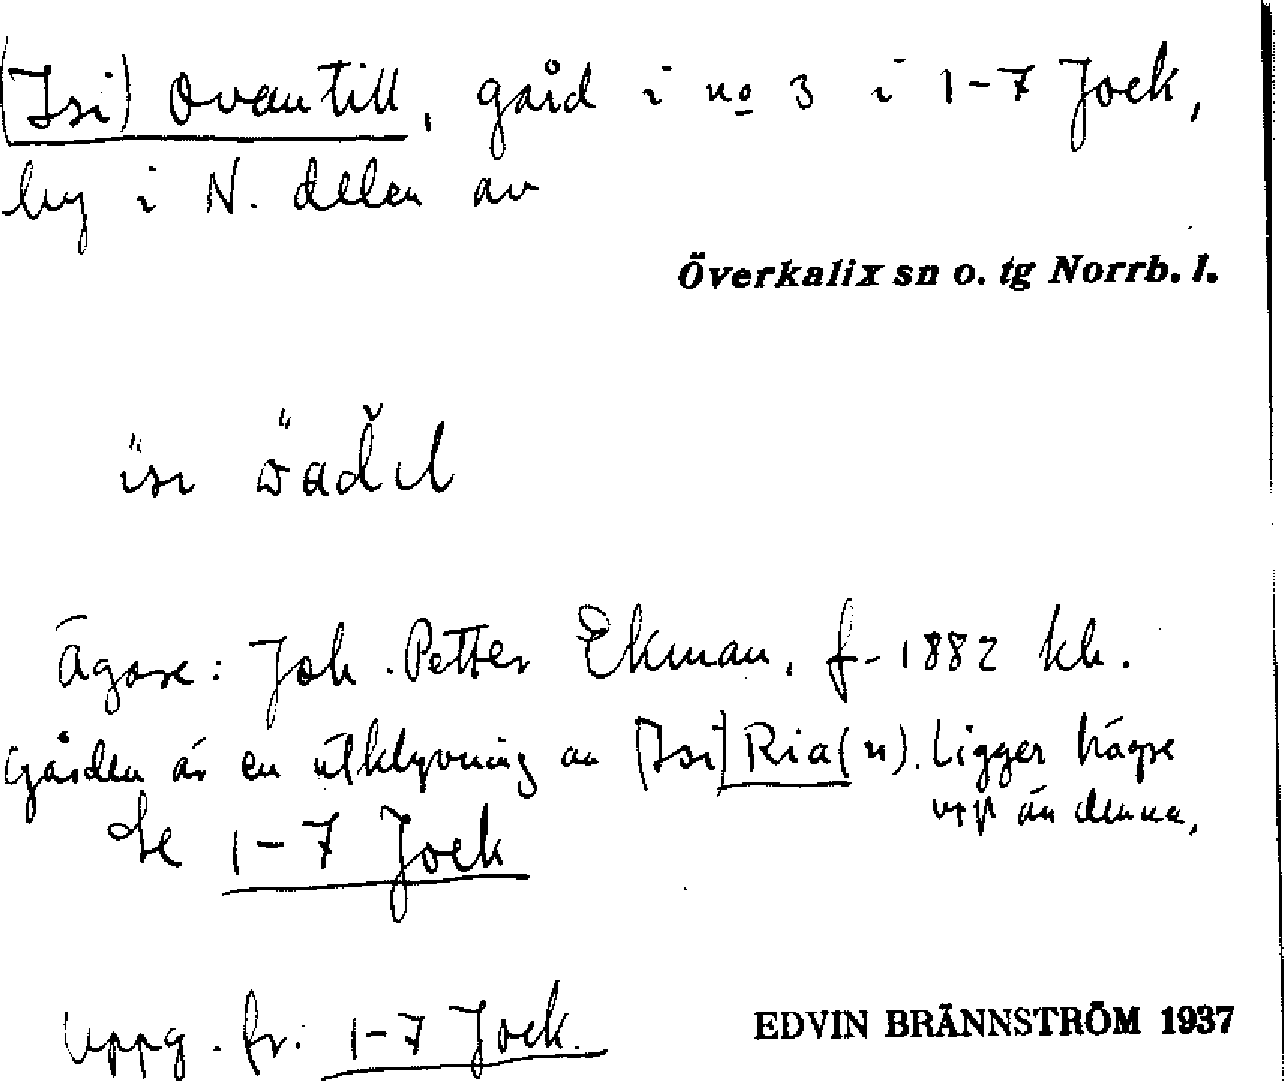 (Isi) Ovantill, gård i no 3 i 1-7 Jock,
by i N. delen av
Överkalix sn o. tg Norrb. l.
Ägare: Joh. Petter Ekman, f. 1882 kh.
Gården är en utklyvning av (Isi) Ria(n). Ligger högre
upp än denna,
Se 1-7 Jock
Uppg. fr. 1-7 Jock.
EDVIN BRÄNNSTRÖM 1937